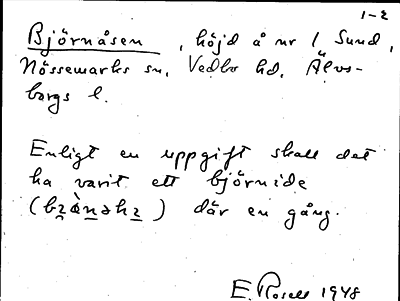 1-2
Björnåsen, höjd å nr 1 Sund,
Nössemarks sn, Vedbo hd, Älvs-
borgs l.
Enligt en uppgift skall det
ha varit ett björnide
() där en gång.
E. Rosell 1948